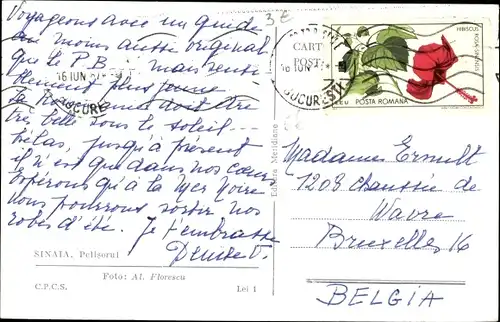 Voyageons avec un guide
au moins aussi original
que le P.B. mais senti-
blement plus jeune.
La Roumanie doit être
très belle sous le soleil---
hélas, jusqu'à présent
il n'est que dans nos cœurs
espérons qu'à la Mer Noire
nous pourrons sortir nos
robes d'été. Je t'embrasse
Denise V.
SINAIA, Pelișorul
Foto: Al. Florescu
C.P.C.S.
Lei 1
Editura Meridiane
3 €
16 IUN
BUCUREȘTI
CART
POST
16 IUN
BUCUREȘTI
HIBISCUS ROSA SINENSIS
POSTA ROMANA
Madame Ermult
1208 chaussée de
Wavre
Bruxelles 16
BELGIA